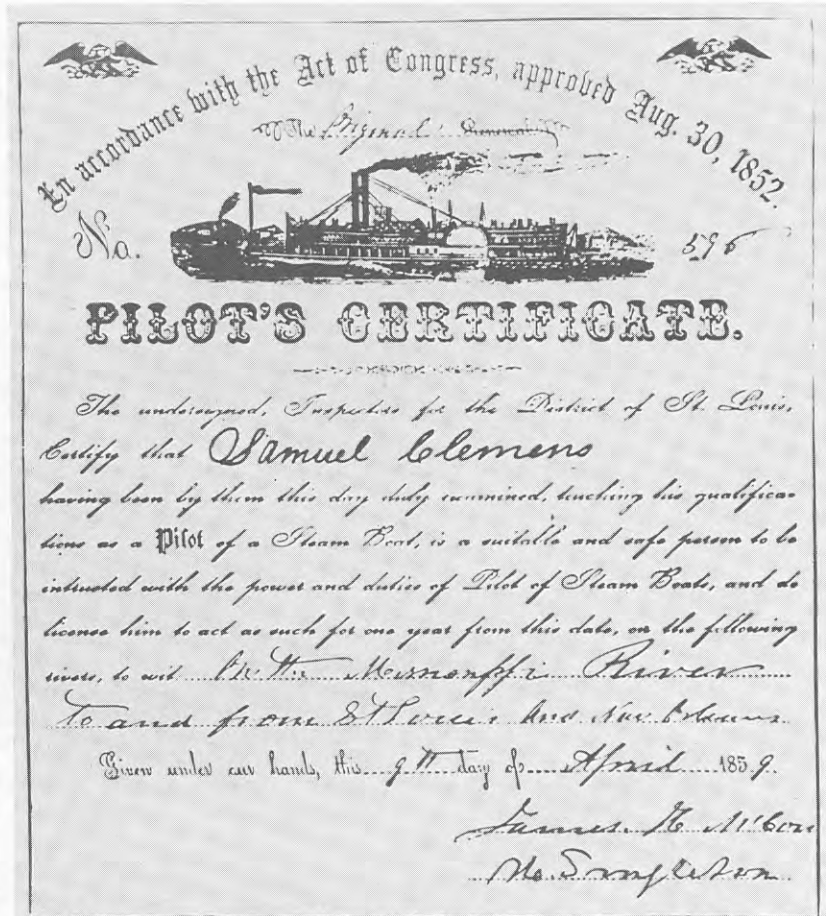 In accordance with the Act of Congress, approved Aug. 30, 1852.
The Original Renewal
No. 596
PILOT'S CERTIFICATE.
The undersigned, Inspectors for the District of St. Louis,
Certify that Samuel Clemens
having been by them this day duly examined, touching his qualifica-
tions as a Pilot of a Steam Boat, is a suitable and safe person to be
intrusted with the power and duties of Pilot of Steam Boats, and do
license him to act as such for one year from this date, on the following
rivers, to wit On the Mississippi River
To and from St Louis And New Orleans
Given under our hands, this 9th day of April 1859.
James H McCor
Singleton